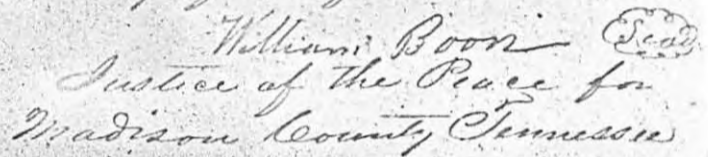 William Boon Seal
Justice of the Peace for
Madison County Tennessee